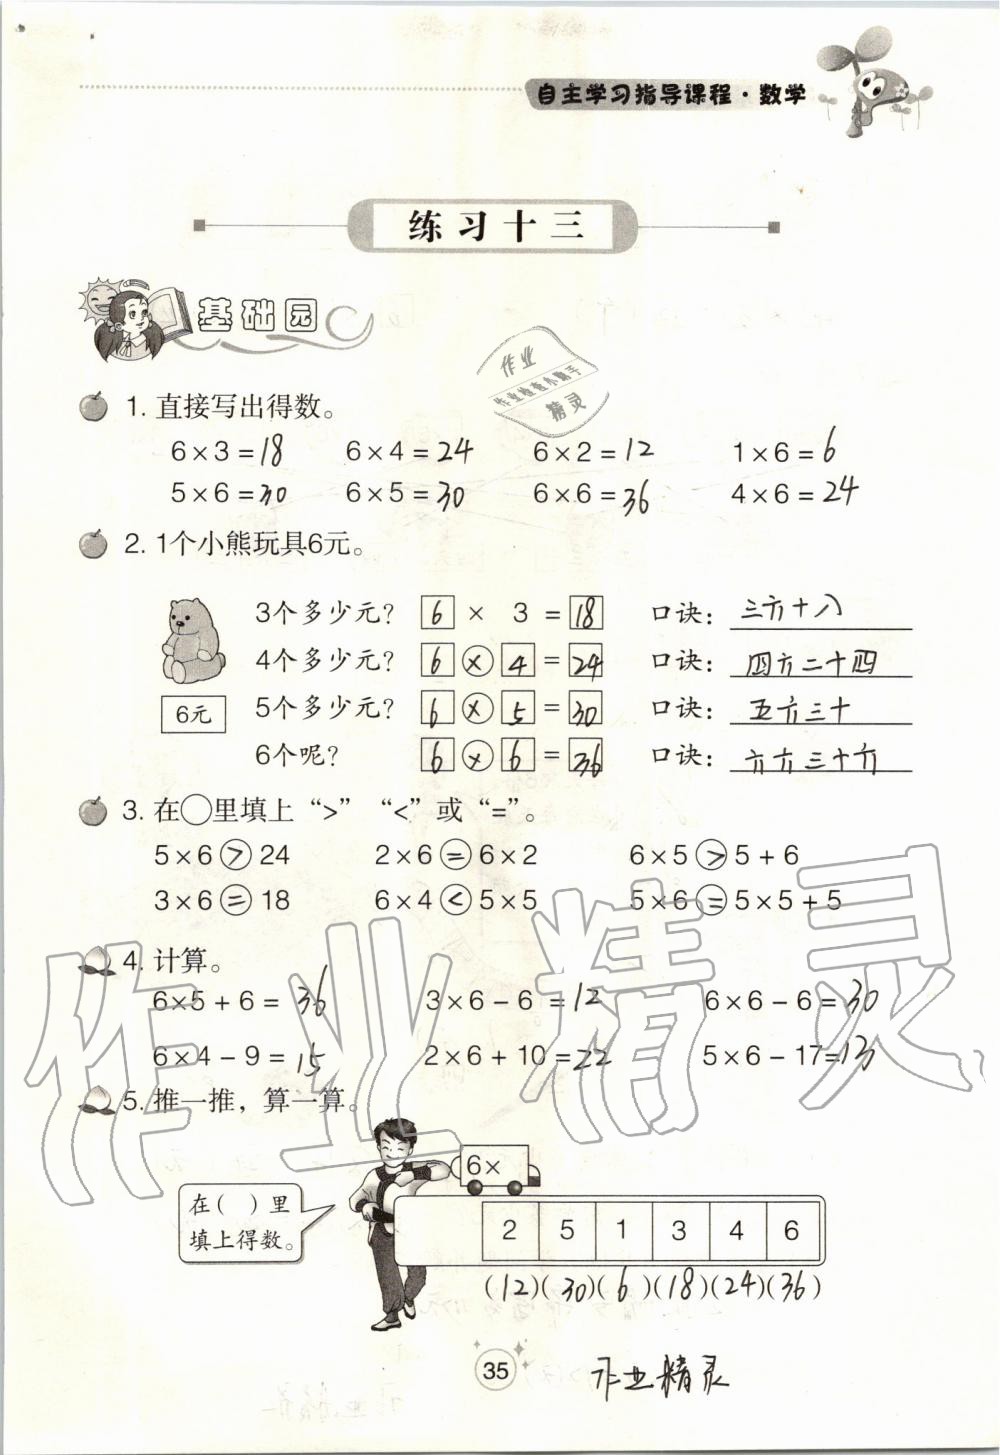 自主学习指导课程·数学
练习十三
基础园
作业
作业检查小助手
精灵
1. 直接写出得数。
6×3=18 6×4=24 6×2=12 1×6=6
5×6=30 6×5=30 6×6=36 4×6=24
2. 1个小熊玩具6元。
3个多少元? 6 × 3 = 18 口诀: 三六十八
4个多少元? 6 × 4 = 24 口诀: 四六二十四
6元 5个多少元? 6 × 5 = 30 口诀: 五六三十
6个呢? 6 × 6 = 36 口诀: 六六三十六
3. 在○里填上“>”“<”或“=”。
5×6>24 2×6=6×2 6×5>5+6
3×6=18 6×4<5×5 5×6=5×5+5
4. 计算。
6×5+6=36 3×6-6=12 6×6-6=30
6×4-9=15 2×6+10=22 5×6-17=13
5. 推一推，算一算。
作业精灵
6×
在( )里
填上得数。
2 5 1 3 4 6
(12)(30)(6)(18)(24)(36)
35
作业精灵